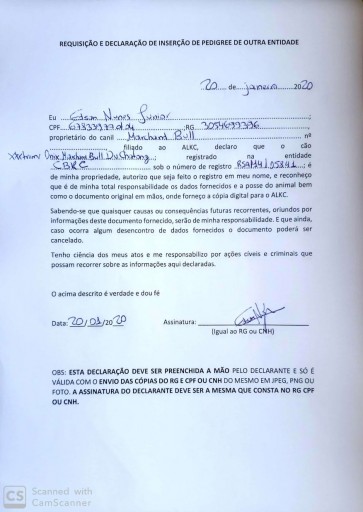 REQUISIÇÃO E DECLARAÇÃO DE INSERÇÃO DE PEDIGREE DE OUTRA ENTIDADE
20 de janeiro 2020
Eu Edson Nunes Junior
CPF RG 3054699796
proprietário do canil Marchand Bull nº
filiado ao ALKC, declaro que o cão
Onix Marchand Bull registrado na entidade
CBKC sob o número de registro é
de minha propriedade, autorizo que seja feito o registro em meu nome, e reconheço
que é de minha total responsabilidade os dados fornecidos e a posse do animal bem
como o documento original em mãos, onde forneço a cópia digital para o ALKC.
Sabendo-se que quaisquer causas ou consequências futuras recorrentes, oriundos por
informações deste documento fornecido, serão de minha responsabilidade. E que ainda,
caso ocorra algum desencontro de dados fornecidos o documento poderá ser
cancelado.
Tenho ciência dos meus atos e me responsabilizo por ações cíveis e criminais que
possam recorrer sobre as informações aqui declaradas.
O acima descrito é verdade e dou fé
Data: 20/01/2020 Assinatura:
(Igual ao RG ou CNH)
OBS: ESTA DECLARAÇÃO DEVE SER PREENCHIDA A MÃO PELO DECLARANTE E SÓ É
VÁLIDA COM O ENVIO DAS CÓPIAS DO RG E CPF OU CNH DO MESMO EM JPEG, PNG OU
FOTO. A ASSINATURA DO DECLARANTE DEVE SER A MESMA QUE CONSTA NO RG CPF
OU CNH.
CS Scanned with
CamScanner